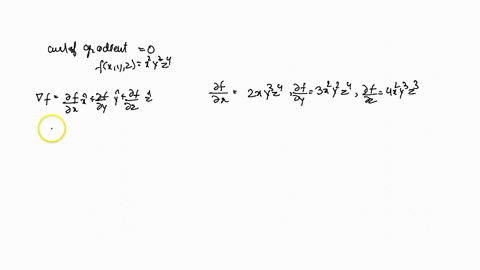 curl of gradient = 0
f(x,y,z) = x²y³z⁴
∇f = ∂f/∂x x̂ + ∂f/∂y ŷ + ∂f/∂z ẑ
∂f/∂x = 2xy³z⁴, ∂f/∂y = 3x²y²z⁴, ∂f/∂z = 4x²y³z³